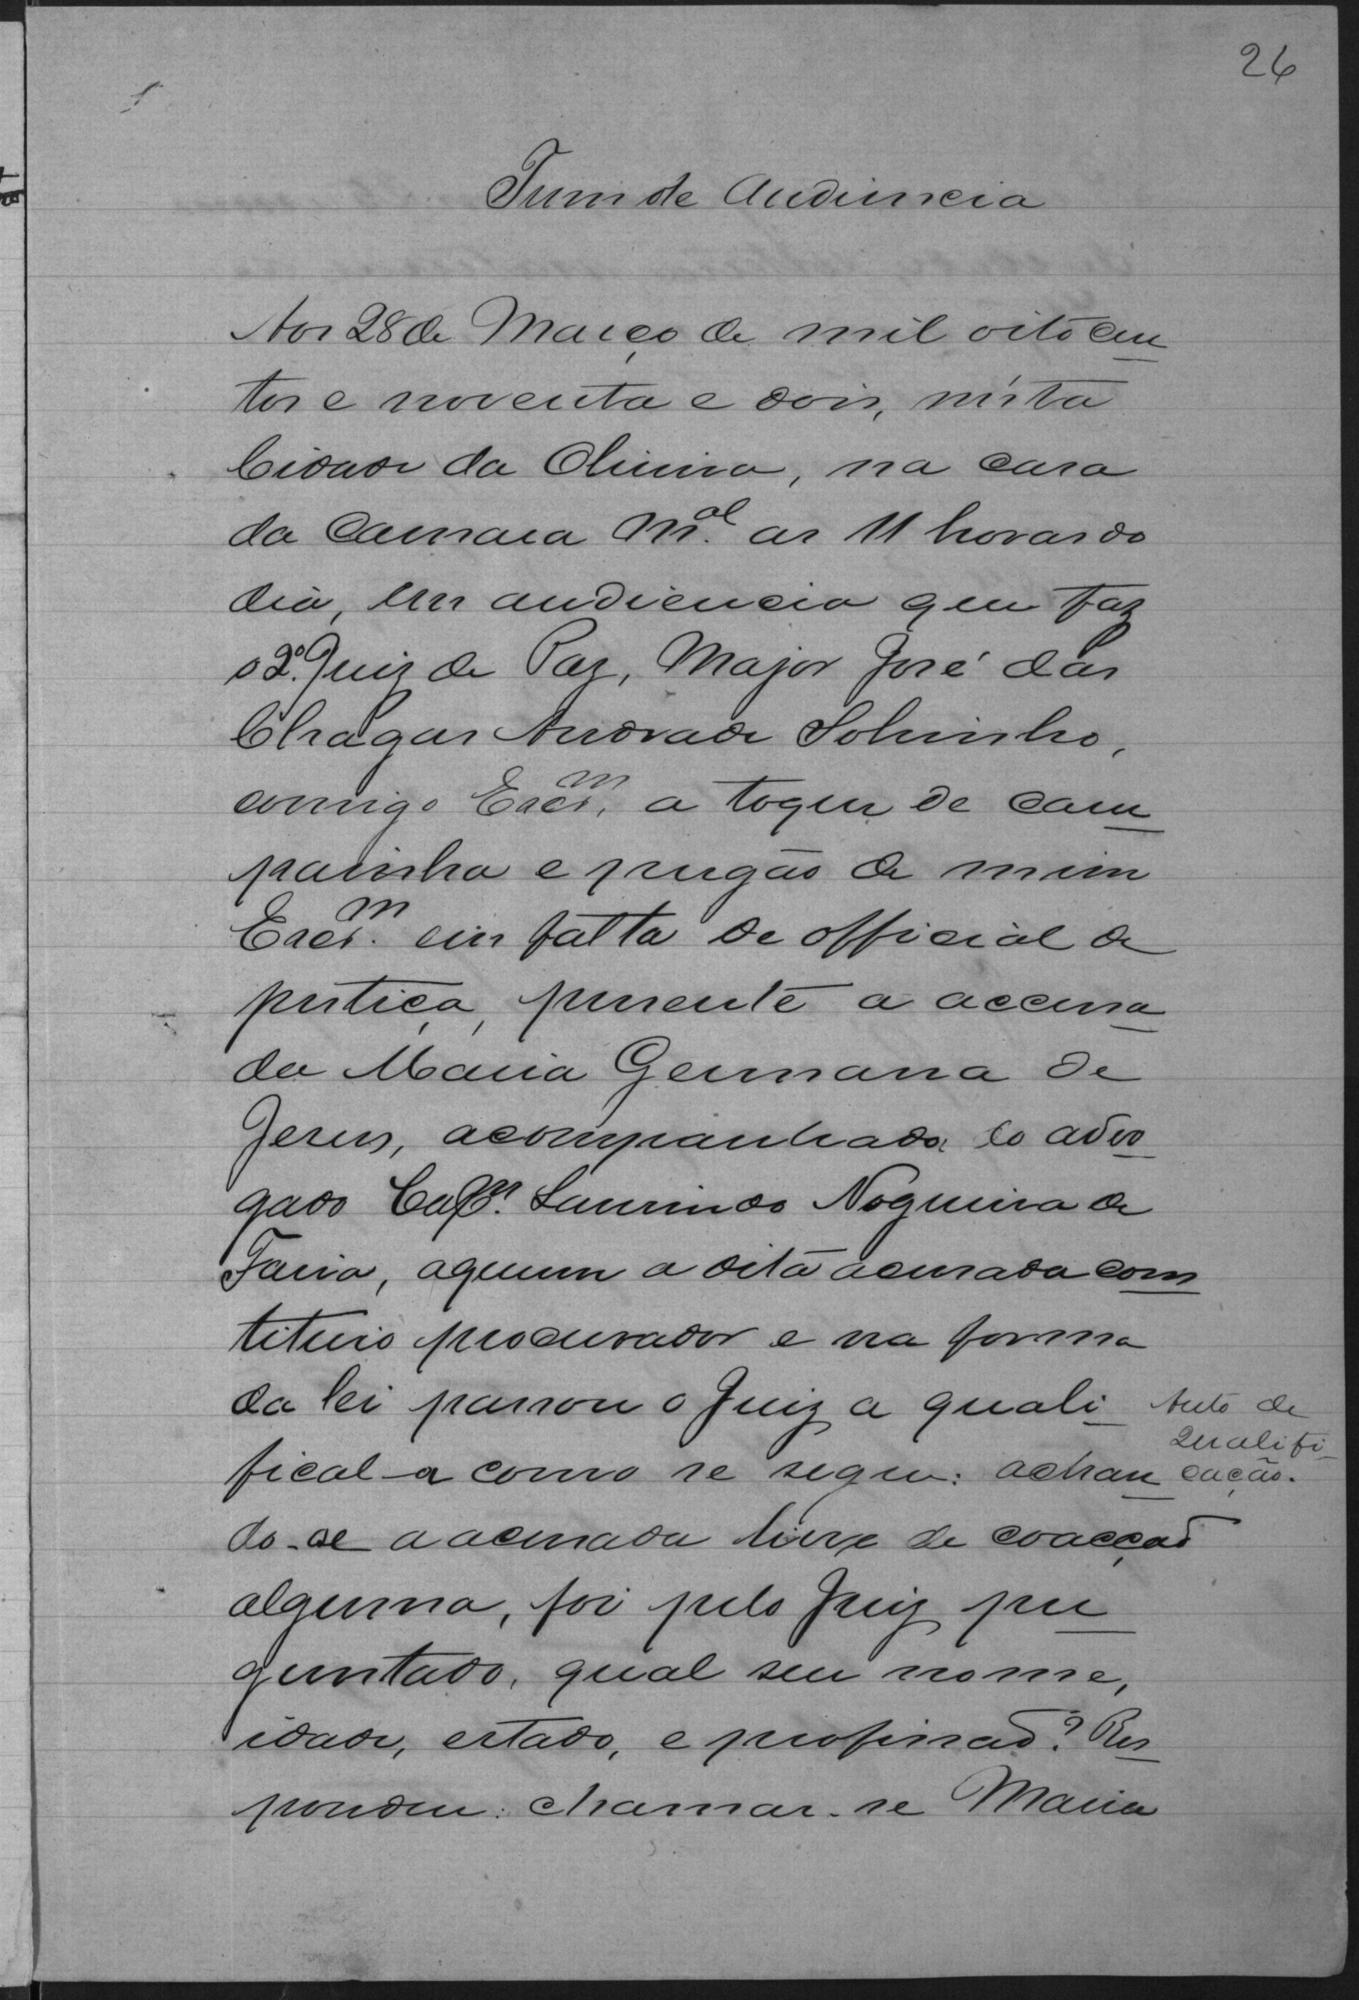 26
Termo de Audiencia
Aos 28 de Março de mil oitocen
tos e noventa e dois, nésta
Cidade da Oliveira, na casa
da Camara Mal. as 11 horas do
dia, em audiencia que faz
o 2º. Juiz de Paz, Major José das
Chagas Andrade Sobrinho,
comigo Escm. a toque de cam
painha e pregão de mim
Escm. em falta de official de
justiça, presente a accusa
da Maria Germana de
Jesus, acompanhada do advo
gado Capm. Laurindo Nogueira de
Faria, aquem a dita acusada cons
tituio procurador e na forma
da lei passou o Juiz a quali
fical-a como se segue: achan
do-se a acusada livre de coacção
alguma, foi pelo Juiz per
guntado, qual seu nome,
idade, estado, e profissão? Res
pondeu: chamar-se Maria
Auto de
Qualifi
cação.